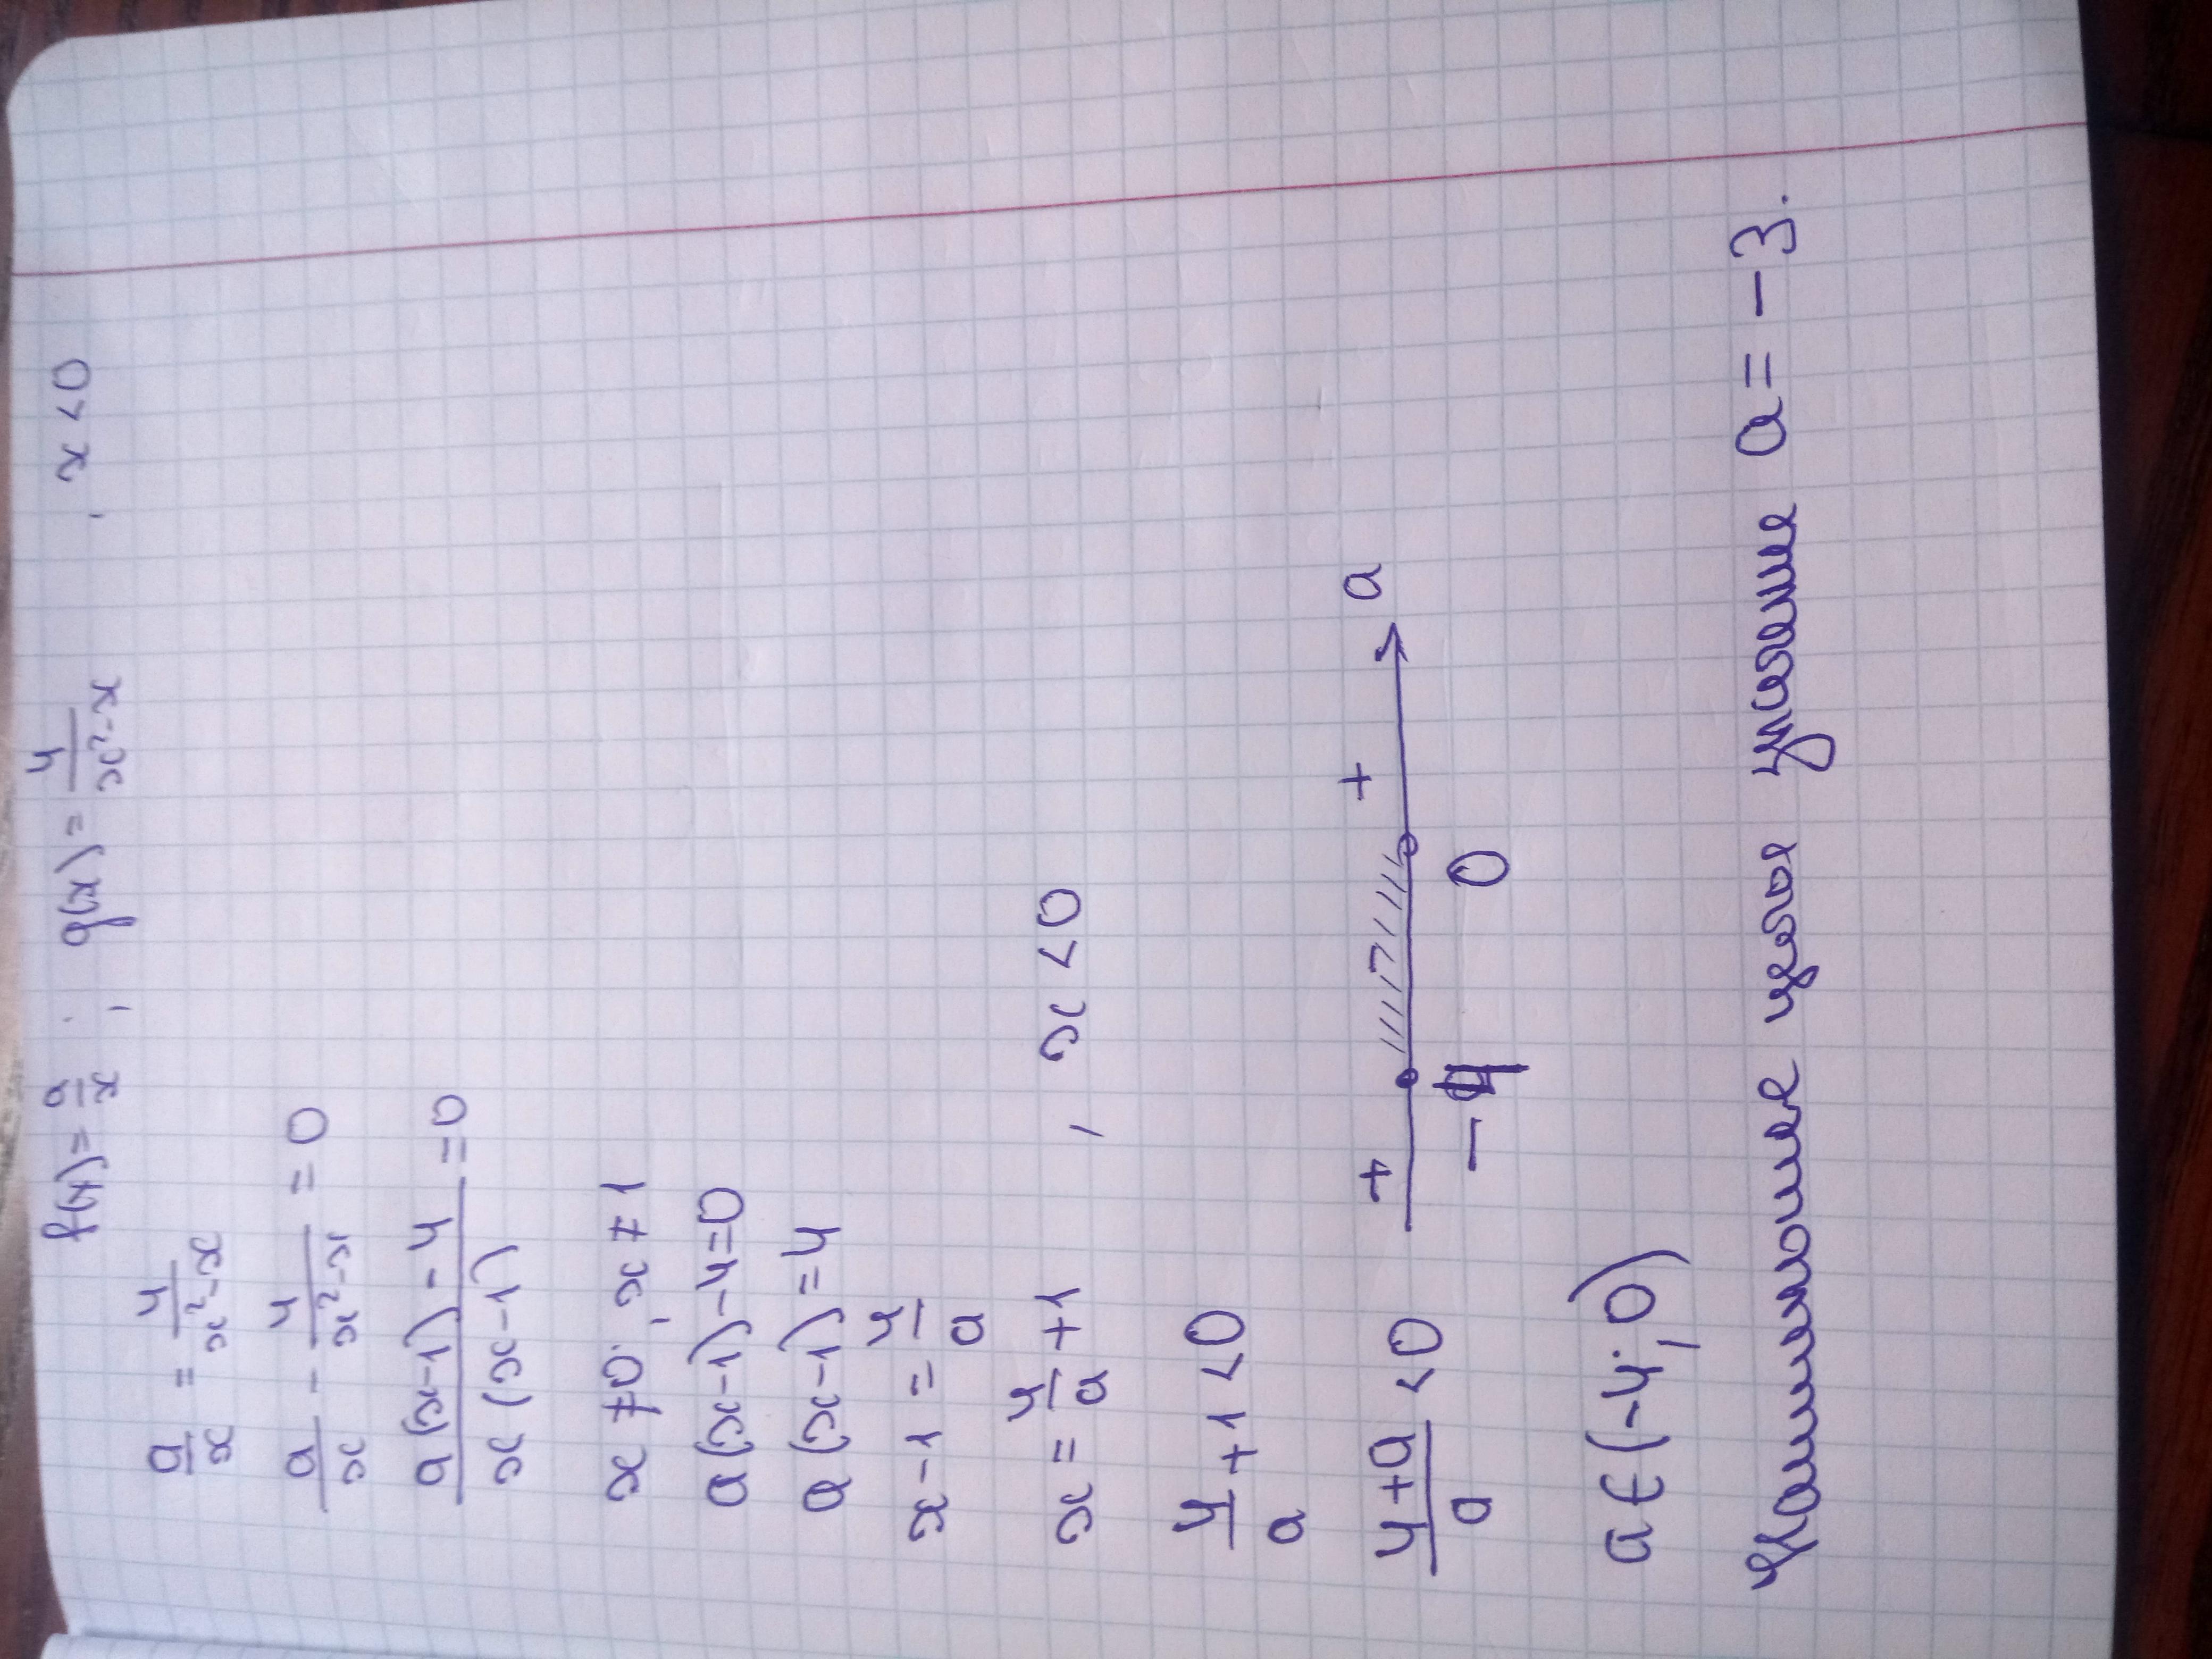 f(x) = a/x ; g(x) = 4/(x²-x) , x < 0
a/x = 4/(x²-x)
a/x - 4/(x²-x) = 0
(a(x-1) - 4)/(x(x-1)) = 0
x ≠ 0; x ≠ 1
a(x-1) - 4 = 0
a(x-1) = 4
x-1 = 4/a
x = 4/a + 1 , x < 0
4/a + 1 < 0
(4+a)/a < 0
+ + a
-4 0
a ∈ (-4; 0)
Наименьшее целое значение a = -3.